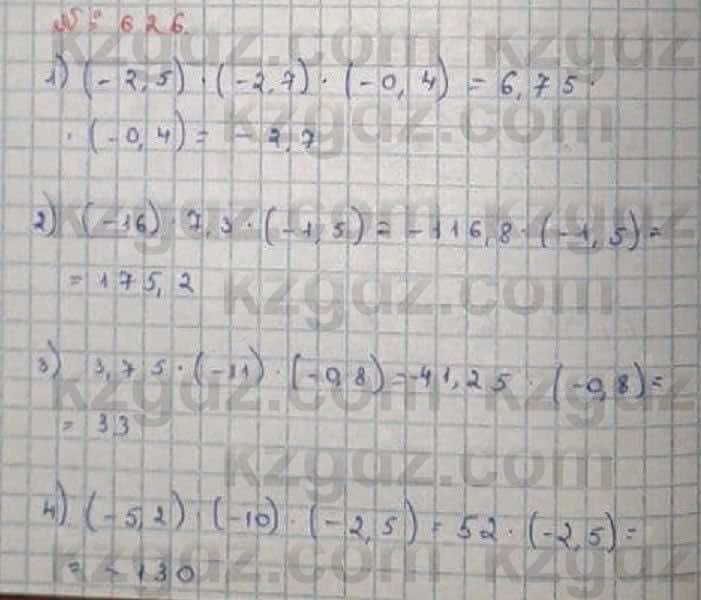 № 626.
1) (-2,5) · (-2,7) · (-0,4) = 6,75 ·
· (-0,4) = -2,7
2) (-16) · 7,3 · (-1,5) = -116,8 · (-1,5) =
= 175,2
3) 3,75 · (-11) · (-0,8) = -41,25 · (-0,8) =
= 33
4) (-5,2) · (-10) · (-2,5) = 52 · (-2,5) =
= -130
kzgdz.com
kzgdz.com
kzgdz.com
kzgdz.com
kzgdz.com
kzgdz.com
kzgdz.com
kzgdz.com